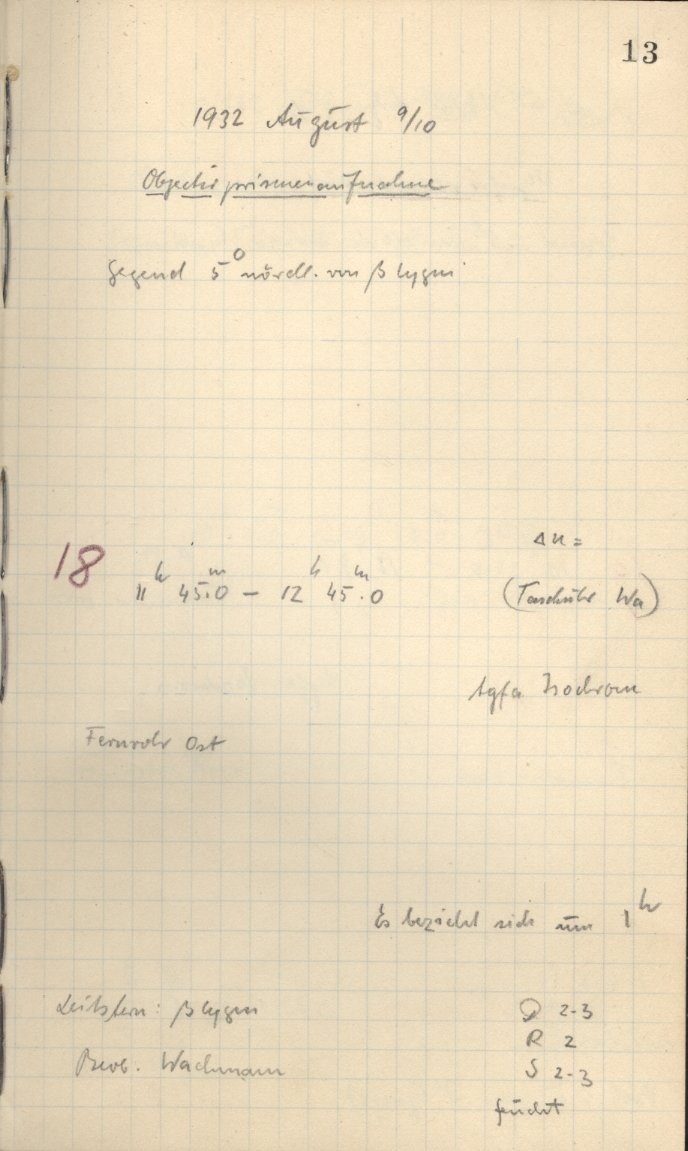 13
1932 August 9/10
Objectivprismenaufnahme
Gegend 5° nördl. von β Cygni
Δu =
18 11h 45m.0 – 12h 45m.0 (Taschuhr Wa)
Agfa Isochrom
Fernrohr Ost
Es bezieht sich um 1h
Leitstern: β Cygni
Beob. Wachmann
2-3
R 2
S 2-3
feucht